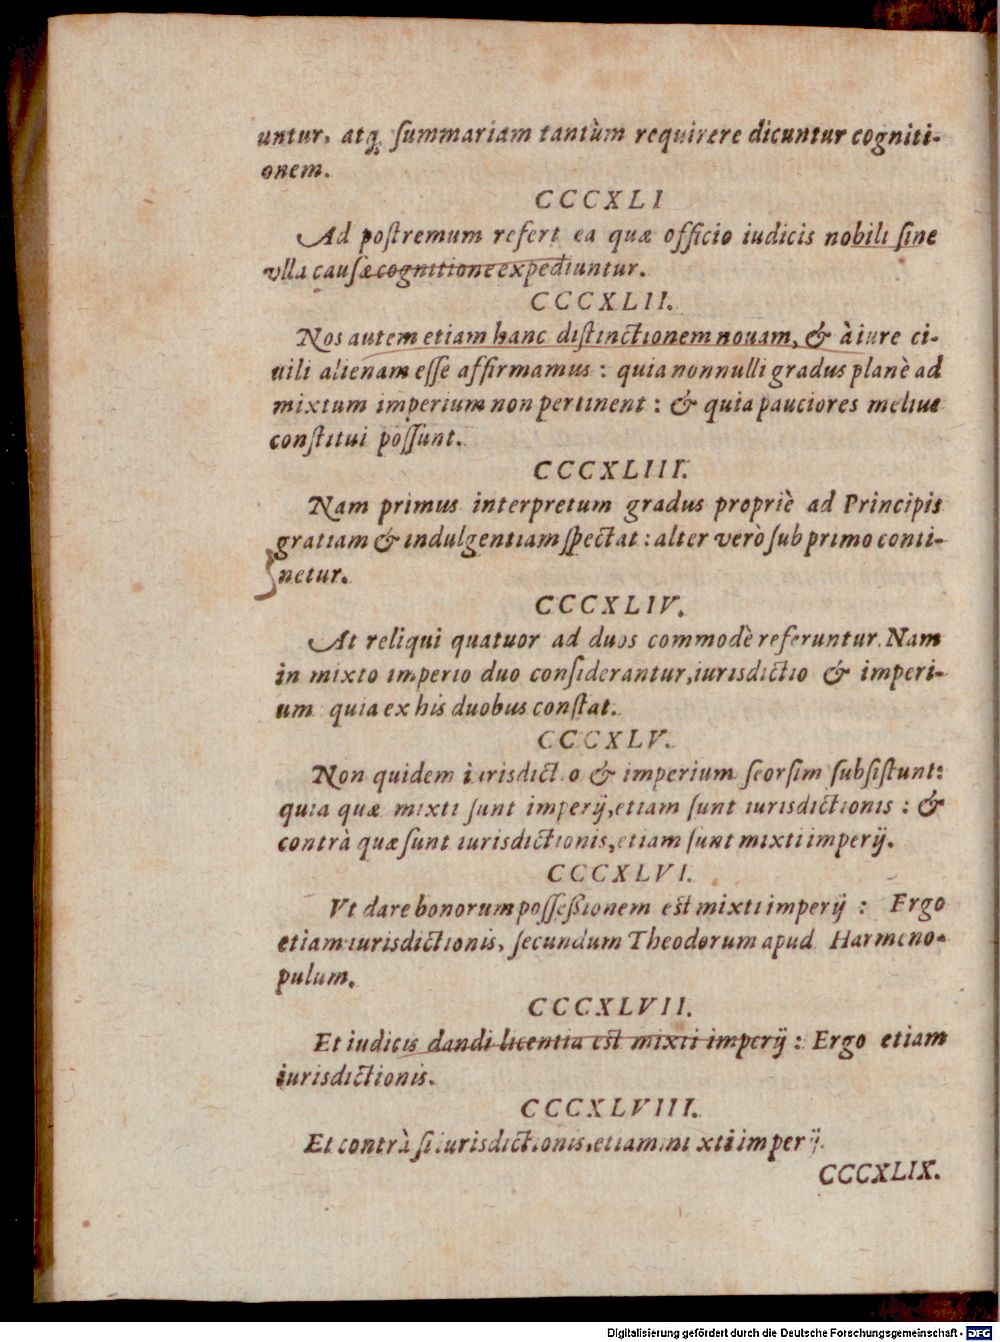 untur, atq́; summariam tantùm requirere dicuntur cogniti-
onem.
CCCXLI
Ad postremum refert ea quæ officio iudicis nobili sine
vlla causæ cognitione expediuntur.
CCCXLII.
Nos autem etiam hanc distinctionem nouam, & à iure ci-
uili alienam esse affirmamus: quia nonnulli gradus planè ad
mixtum imperium non pertinent: & quia pauciores melius
constitui possunt.
CCCXLIII.
Nam primus interpretum gradus propriè ad Principis
gratiam & indulgentiam spectat: alter verò sub primo conti-
netur.
CCCXLIV.
At reliqui quatuor ad duos commodè referuntur. Nam
in mixto imperio duo considerantur, iurisdictio & imperi-
um quia ex his duobus constat.
CCCXLV.
Non quidem iurisdictio & imperium seorsim subsistunt:
quia quæ mixti sunt imperij, etiam sunt iurisdictionis: &
contrà quæ sunt iurisdictionis, etiam sunt mixti imperij.
CCCXLVI.
Vt dare bonorum possessionem est mixti imperij: Ergo
etiam iurisdictionis, secundum Theodorum apud Harmeno-
pulum.
CCCXLVII.
Et iudicis dandi licentia est mixti imperij: Ergo etiam
iurisdictionis.
CCCXLVIII.
Et contrà si iurisdictionis, etiam mixti imperij.
CCCXLIX.
Digitalisierung gefördert durch die Deutsche Forschungsgemeinschaft - DFG